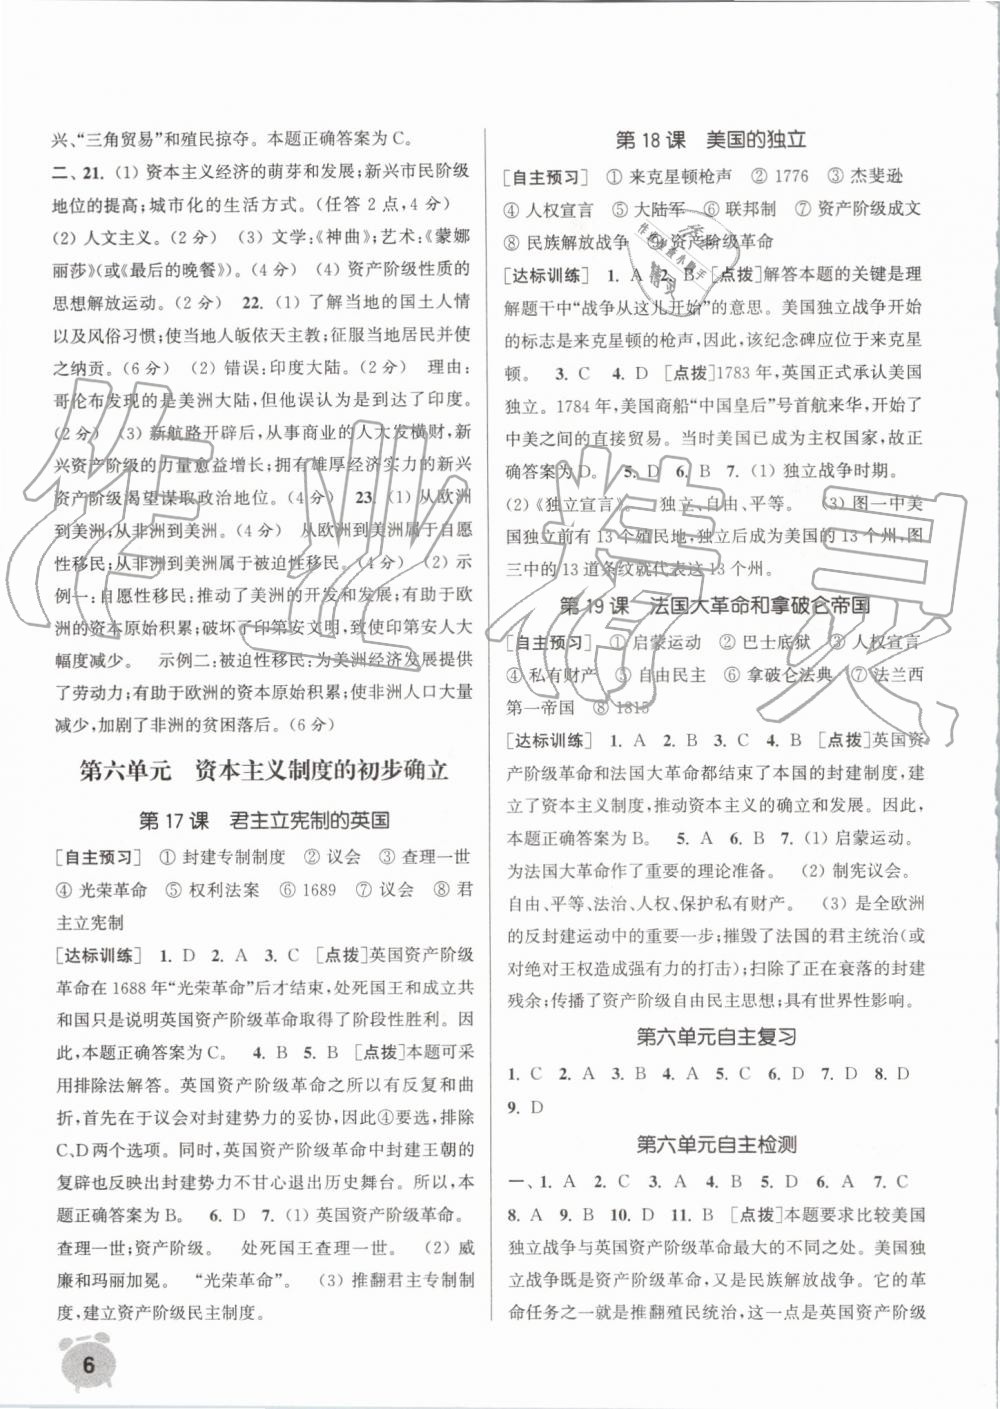 兴、“三角贸易”和殖民掠夺。本题正确答案为C。
二、21.（1）资本主义经济的萌芽和发展；新兴市民阶级
地位的提高；城市化的生活方式。（任答2点，4分）
（2）人文主义。（2分）　（3）文学：《神曲》；艺术：《蒙娜
丽莎》（或《最后的晚餐》）。（4分）　（4）资产阶级性质的
思想解放运动。（2分）　22.（1）了解当地的国土人情
以及风俗习惯；使当地人皈依天主教；征服当地居民并使
之纳贡。（6分）　（2）错误：印度大陆。（2分）　理由：
哥伦布发现的是美洲大陆，但他误以为到达了印度。
（2分）　（3）新航路开辟后，从事商业的人大发横财，新
兴资产阶级的力量愈益增长；拥有雄厚经济实力的新兴
资产阶级渴望谋取政治地位。（4分）　23.（1）从欧洲
到美洲；从非洲到美洲。（4分）　从欧洲到美洲属于自愿
性移民；从非洲到美洲属于被迫性移民。（4分）　（2）示
例一：自愿性移民；推动了美洲的开发和发展；有助于欧
洲的资本原始积累；破坏了印第安文明，致使印第安人大
幅度减少。　示例二：被迫性移民；为美洲经济发展提供
了劳动力；有助于欧洲的资本原始积累；使非洲人口大量
减少，加剧了非洲的贫困落后。（6分）
第六单元　资本主义制度的初步确立
第17课　君主立宪制的英国
［自主预习］　①封建专制制度　②议会　③查理一世
④光荣革命　⑤权利法案　⑥1689　⑦议会　⑧君
主立宪制
［达标训练］　1. D　2. A　3. C　［点拨］英国资产阶级
革命在1688年“光荣革命”后才结束，处死国王和成立共
和国只是说明英国资产阶级革命取得了阶段性胜利。因
此，本题正确答案为C。　4. B　5. B　［点拨］本题可采
用排除法解答。英国资产阶级革命之所以有反复和曲
折，首先在于议会对封建势力的妥协，因此④要选，排除
C、D两个选项。同时，英国资产阶级革命中封建王朝的
复辟也反映出封建势力不甘心退出历史舞台。所以，本
题正确答案为B。　6. D　7.（1）英国资产阶级革命。
查理一世；资产阶级。　处死国王查理一世。　（2）威
廉和玛丽加冕。　“光荣革命”。　（3）推翻君主专制制
度，建立资产阶级民主制度。
6
第18课　美国的独立
［自主预习］　①来克星顿枪声　②1776　③杰斐逊
④人权宣言　⑤大陆军　⑥联邦制　⑦资产阶级成文
⑧民族解放战争　⑨资产阶级革命
［达标训练］　1. A　2. B　［点拨］解答本题的关键是理
解题干中“战争从这儿开始”的意思。美国独立战争开始
的标志是来克星顿的枪声，因此，该纪念碑应位于来克星
顿。　3. C　4. D　［点拨］1783年，英国正式承认美国
独立。1784年，美国商船“中国皇后”号首航来华，开始了
中美之间的直接贸易。当时美国已成为主权国家，故正
确答案为D。　5. D　6. B　7.（1）独立战争时期。
（2）《独立宣言》。　独立、自由、平等。　（3）图一中美
国独立前有13个殖民地，独立后成为美国的13个州，图
三中的13道条纹就代表这13个州。
第19课　法国大革命和拿破仑帝国
［自主预习］　①启蒙运动　②巴士底狱　③人权宣言
④私有财产　⑤自由民主　⑥拿破仑法典　⑦法兰西
第一帝国　⑧1815
［达标训练］　1. A　2. B　3. C　4. B　［点拨］英国资
产阶级革命和法国大革命都结束了本国的封建制度，建
立了资本主义制度，推动资本主义的确立和发展。因此，
本题正确答案为B。　5. A　6. B　7.（1）启蒙运动。
为法国大革命作了重要的理论准备。　（2）制宪议会。
自由、平等、法治、人权、保护私有财产。　（3）是全欧洲
的反封建运动中的重要一步；摧毁了法国的君主统治（或
对绝对王权造成强有力的打击）；扫除了正在衰落的封建
残余；传播了资产阶级自由民主思想；具有世界性影响。
第六单元自主复习
1. C　2. A　3. B　4. A　5. C　6. D　7. D　8. D
9. D
第六单元自主检测
一、1. A　2. C　3. A　4. C　5. D　6. A　7. C
8. A　9. B　10. D　11. B　［点拨］本题要求比较美国
独立战争与英国资产阶级革命最大的不同之处。美国
独立战争既是资产阶级革命，又是民族解放战争。它的革
命任务之一是推翻殖民统治，这一点是英国资产阶级
作业精灵